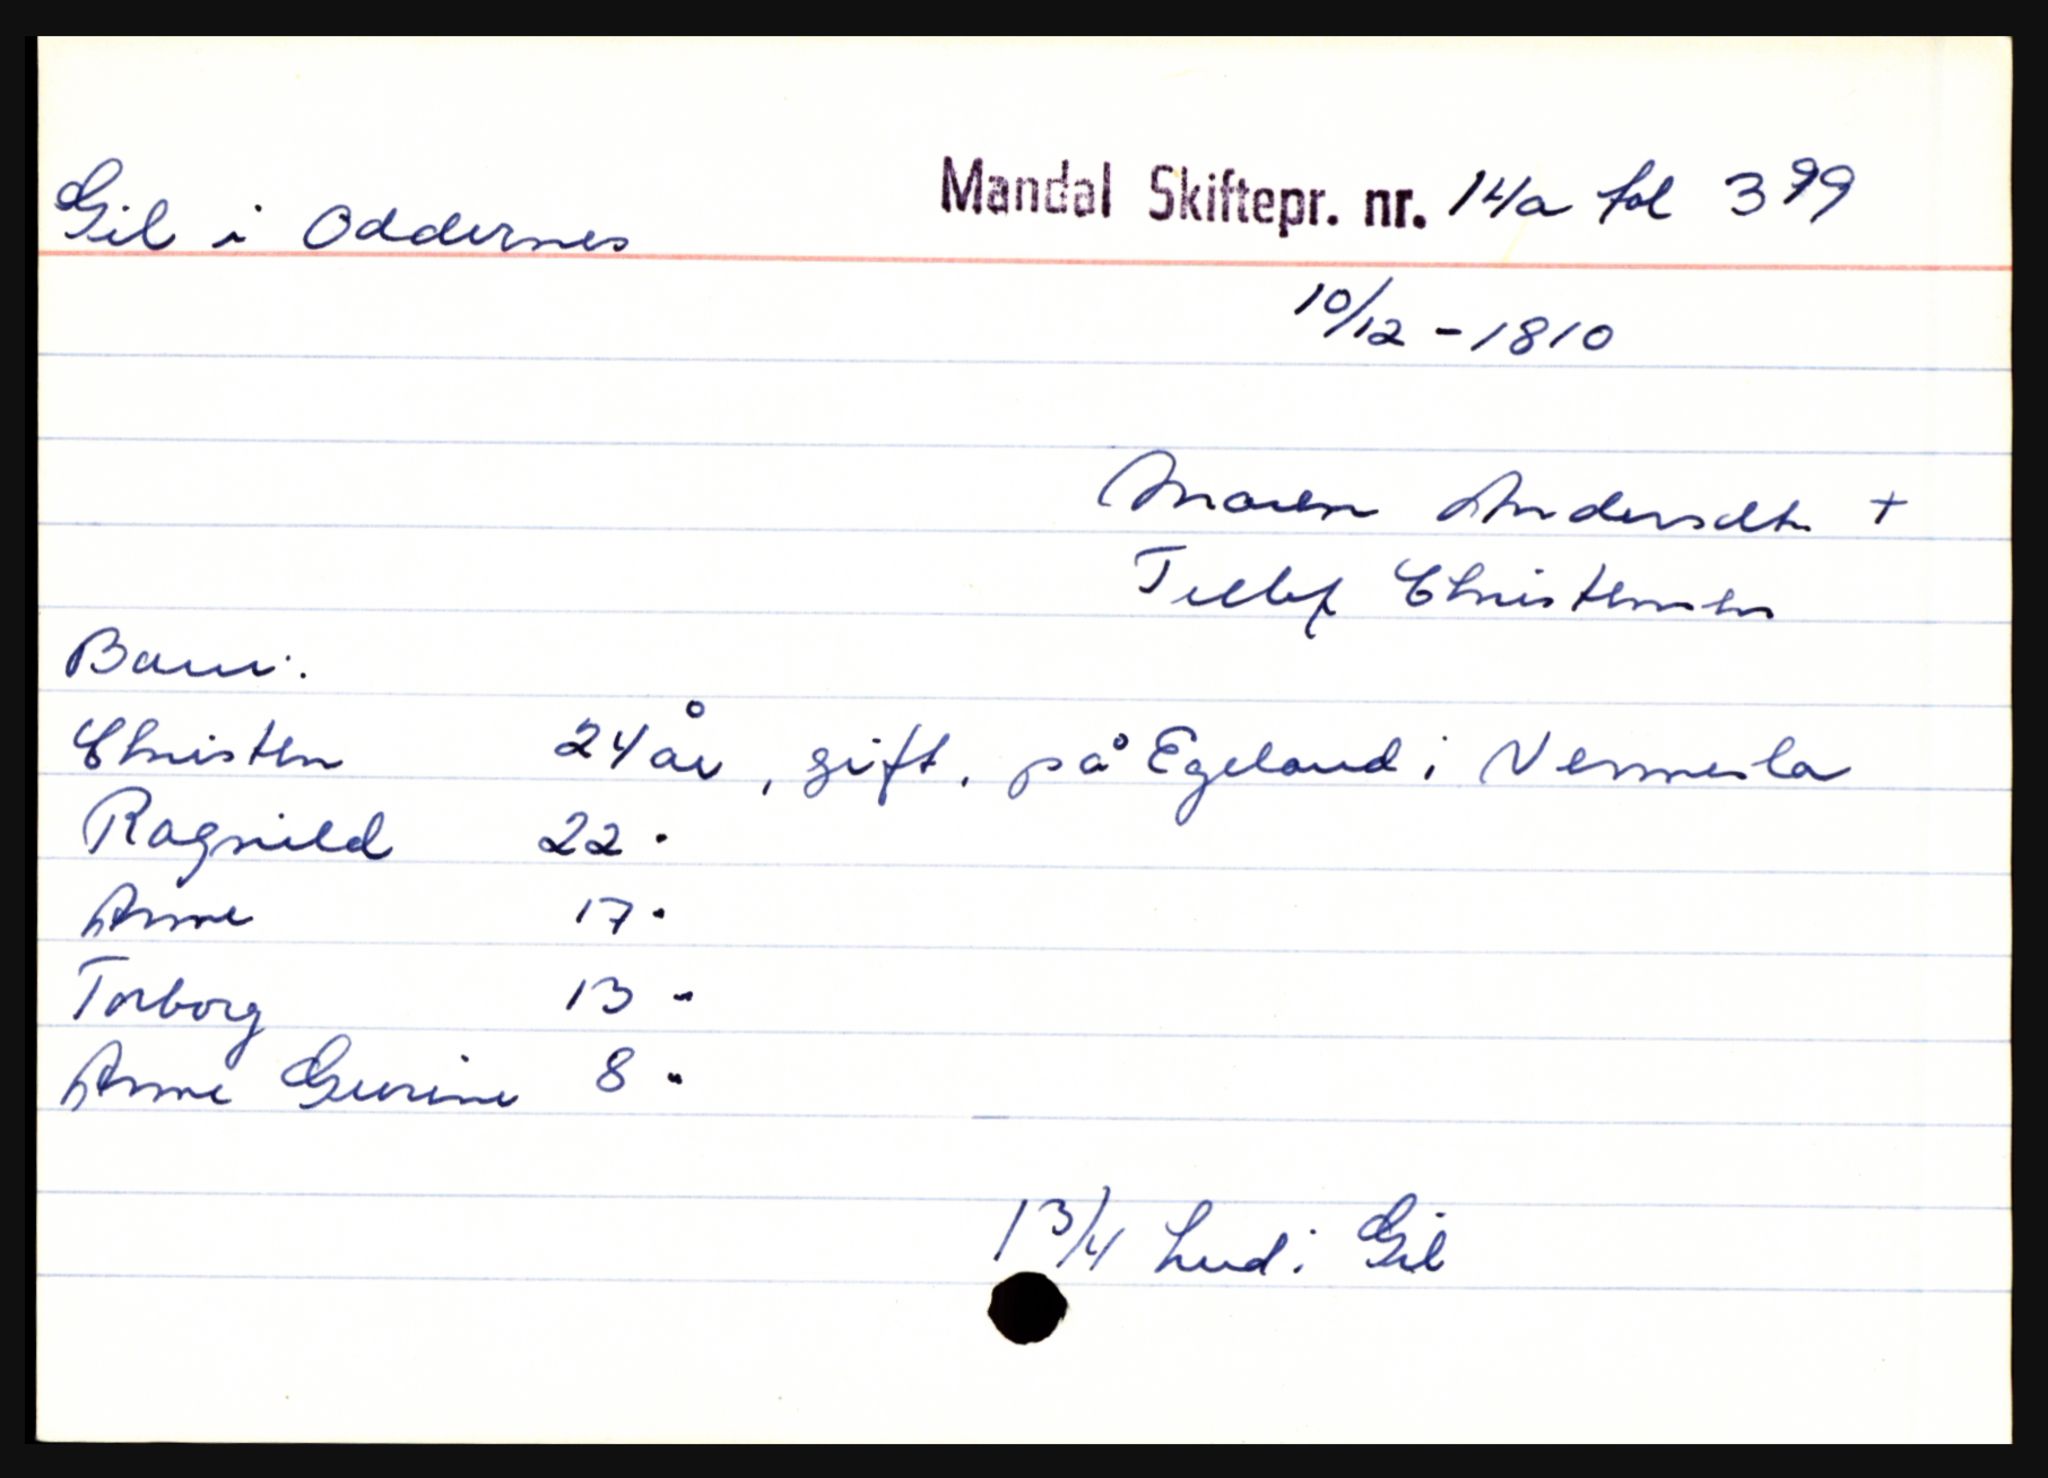 Gil i Oddernes
Mandal Skiftepr. nr. 14a fol 399
10/12 - 1810
Maren Andersdtr +
Tellef Christensen
Barn:
Christen 24 år, gift, på Egeland i Vennesla
Ragnild 22 "
Anne 17 "
Torborg 13 "
Anne Gurine 8 "
1 3/4 hud i Gil